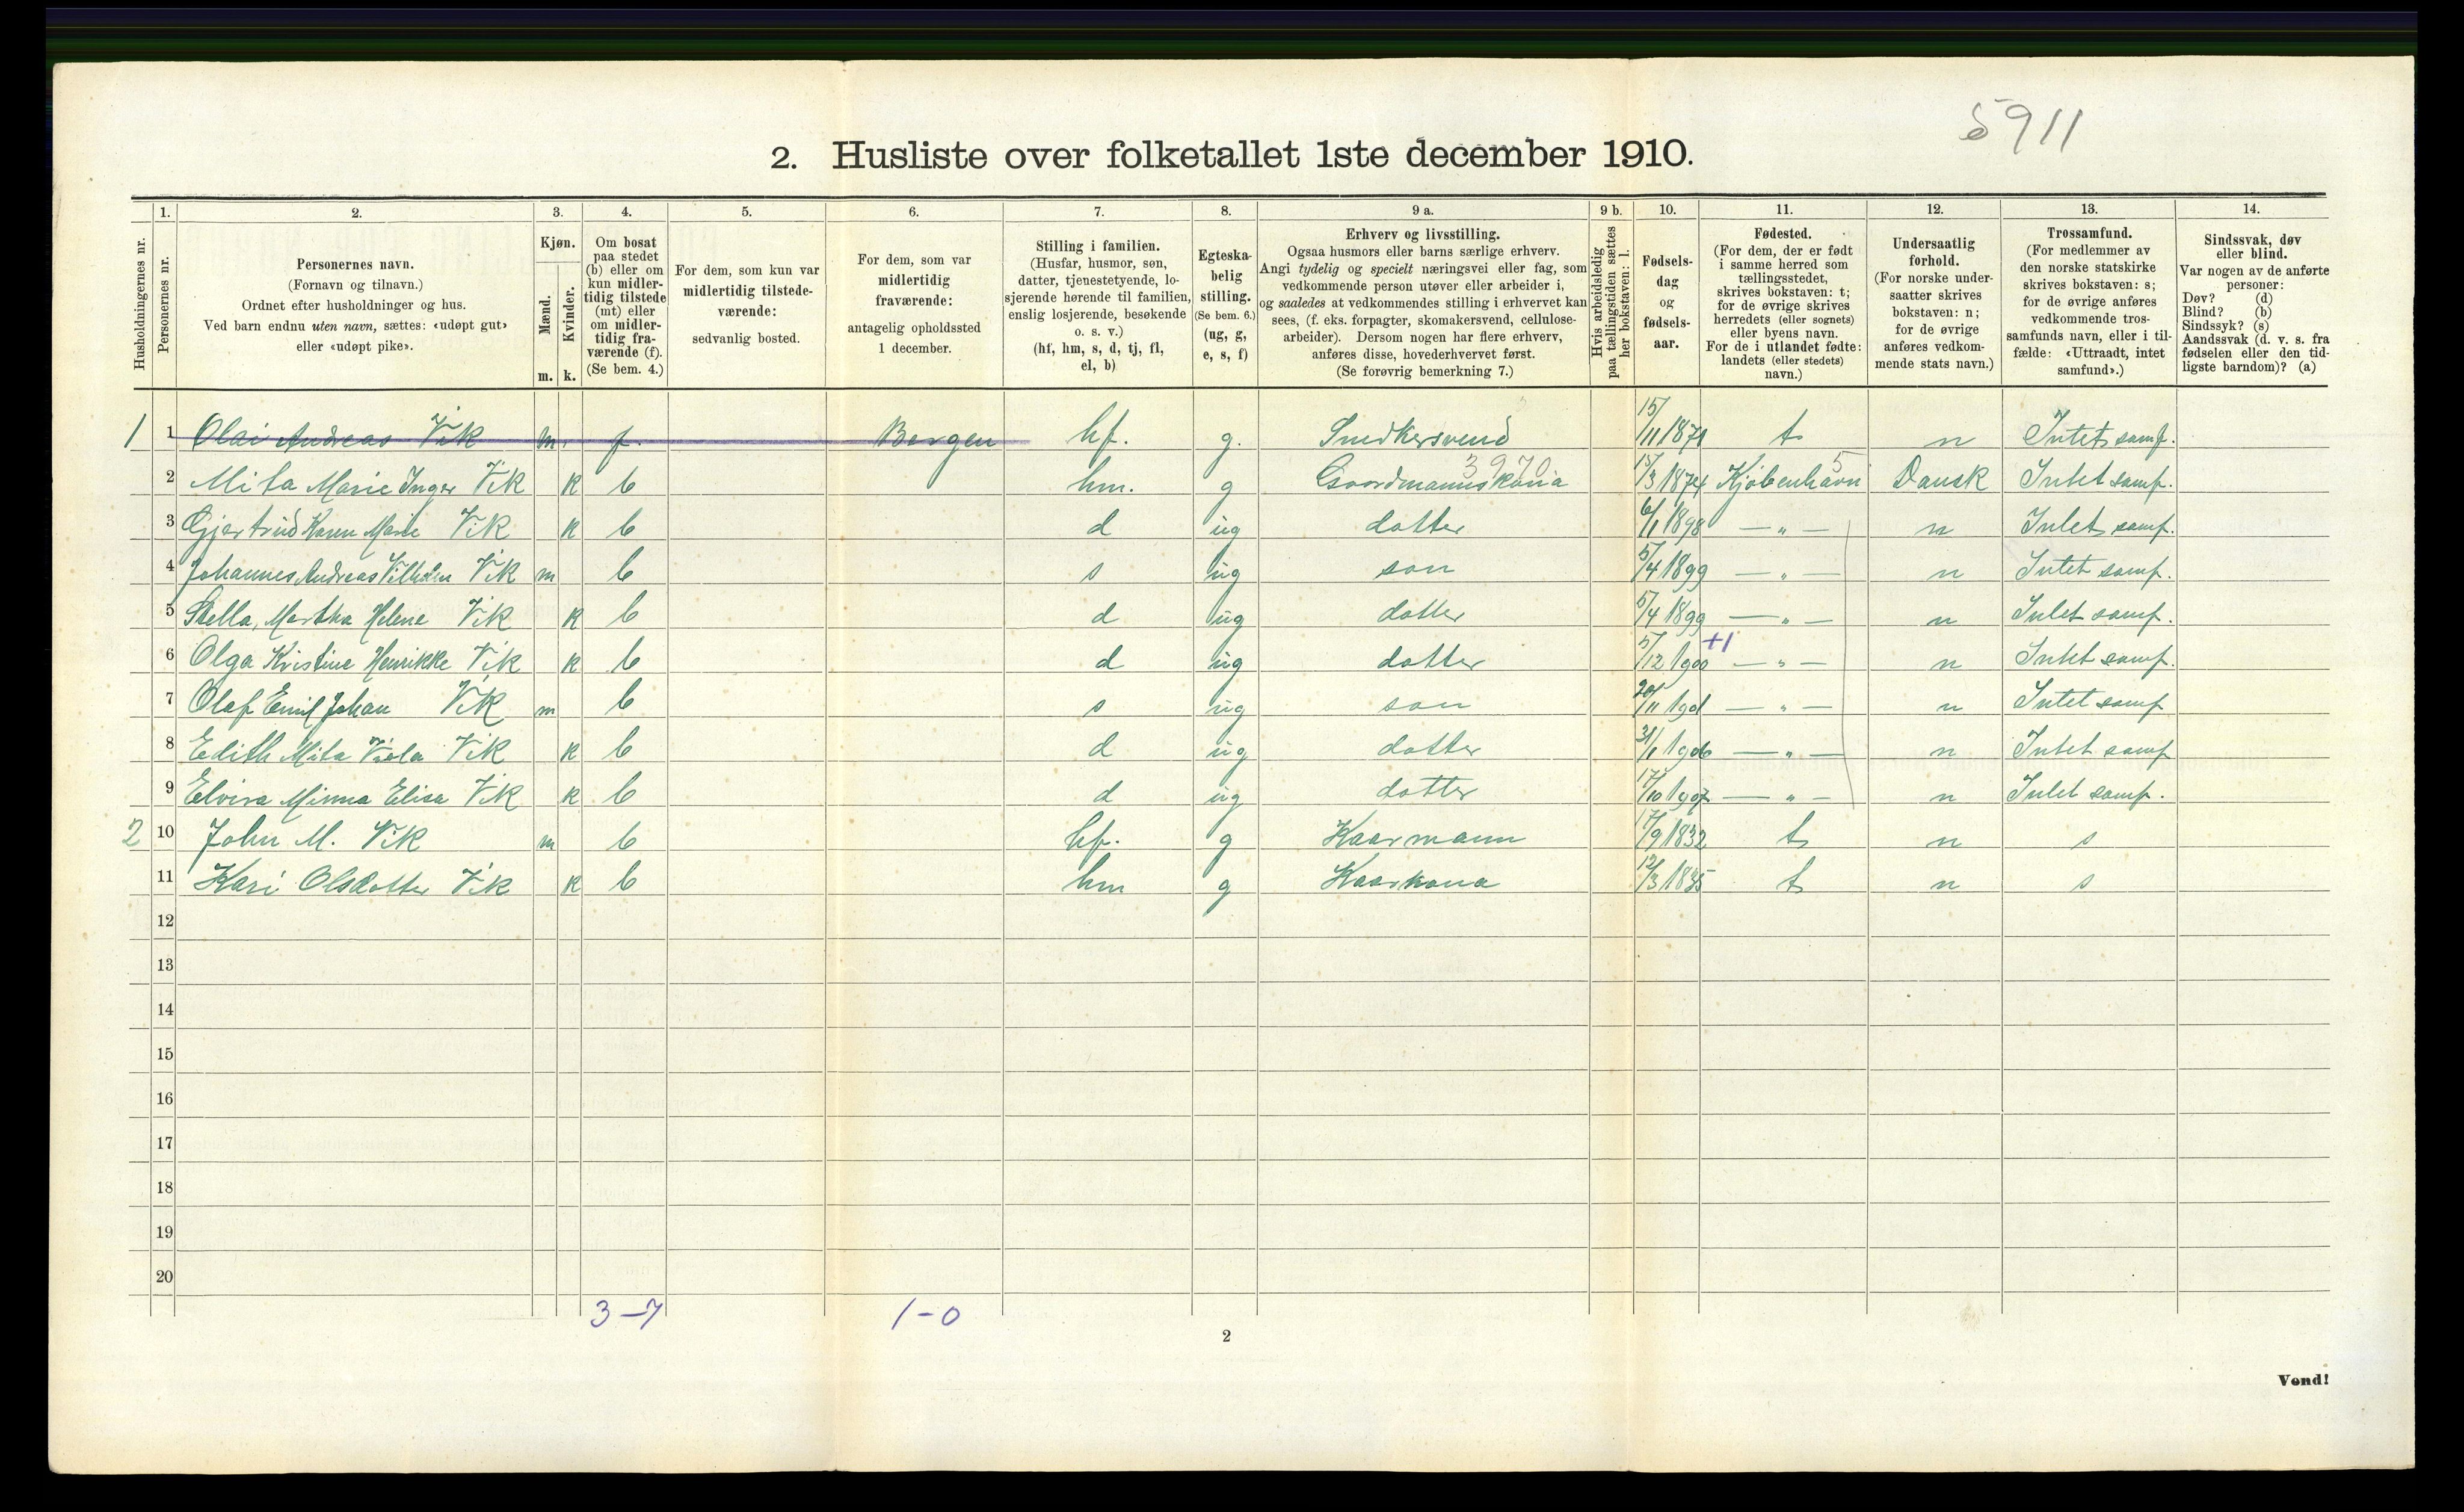 5911
2. Husliste over folketallet 1ste december 1910.
Husholdningernes nr.
1.
Personernes nr.
2.
Personernes navn.
(Fornavn og tilnavn.)
Ordnet efter husholdninger og hus.
Ved barn endnu uten navn, sættes: «udøpt gut»
eller «udøpt pike».
3.
Kjøn.
Mænd.
Kvinder.
m. k.
4.
Om bosat
paa stedet
(b) eller om
kun midler-
tidig tilstede
(mt) eller
om midler-
tidig fra-
værende (f).
(Se bem. 4.)
5.
For dem, som kun var
midlertidig tilstede-
værende:
sedvanlig bosted.
6.
For dem, som var
midlertidig
fraværende:
antagelig opholdssted
1 december.
7.
Stilling i familien.
(Husfar, husmor, søn,
datter, tjenestetyende, lo-
sjerende hørende til familien,
enslig losjerende, besøkende
o. s. v.)
(hf, hm, s, d, tj, fl,
el, b)
8.
Egteska-
belig
stilling.
(Se bem. 6.)
(ug, g,
e, s, f)
9 a.
Erhverv og livsstilling.
Ogsaa husmors eller barns særlige erhverv.
Angi tydelig og specielt næringsvei eller fag, som
vedkommende person utøver eller arbeider i,
og saaledes at vedkommendes stilling i erhvervet kan
sees, (f. eks. forpagter, skomakersvend, cellulose-
arbeider). Dersom nogen har flere erhverv,
anføres disse, hovederhvervet først.
(Se forøvrig bemerkning 7.)
9 b.
Hvis arbeidsledig
paa tællingstiden sættes
her bokstaven: l.
10.
Fødsels-
dag
og
fødsels-
aar.
11.
Fødested.
(For dem, der er født
i samme herred som
tællingsstedet,
skrives bokstaven: t;
for de øvrige skrives
herredets (eller sognets)
eller byens navn.
For de i utlandet fødte:
landets (eller stedets)
navn.)
12.
Undersaatlig
forhold.
(For norske under-
saatter skrives
bokstaven: n;
for de øvrige
anføres vedkom-
mende stats navn.)
13.
Trossamfund.
(For medlemmer av
den norske statskirke
skrives bokstaven: s;
for de øvrige anføres
vedkommende tros-
samfunds navn, eller i til-
fælde: «Uttraadt, intet
samfund».)
14.
Sindssvak, døv
eller blind.
Var nogen av de anførte
personer:
Døv? (d)
Blind? (b)
Sindssyk? (s)
Aandssvak (d. v. s. fra
fødselen eller den tid-
ligste barndom)? (a)
1 1 Olai Andreas Vik m. f. Bergen hf. g. Snedkersvend 15/11 1871 t n Intet samf.
2 Mita Marie Inger Vik k b hm. g Gaardmannskona 3970 15/3 1874 Kjøbenhavn 5 Dansk Intet samf.
3 Gjertrud Karen Marie Vik k b d ug dotter 6/1 1898 — " — n Intet samf.
4 Johannes Andreas Vilhelm Vik m b s ug son 5/4 1899 — " — n Intet samf.
5 Stella, Martha Helene Vik k b d ug dotter 5/4 1899 — " — n Intet samf.
6 Olga Kristine Henrikke Vik k b d ug dotter 5/12 1900 +1 — " — n Intet samf.
7 Olaf Emil Johan Vik m b s ug son 20/11 1901 — " — n Intet samf
8 Edith Mita Viola Vik k b d ug dotter 31/1 1906 — " — n Intet samf
9 Elvira Minna Elisa Vik k b d ug dotter 17/10 1907 — " — n Intet samf.
2 10 John M. Vik m b hf. g Kaarmann 17/9 1832 t n s
11 Kari Olsdotter Vik k b hm g Kaarkona 12/3 1835 t n s
12
13
14
15
16
17
18
19
20
3-7 1-0
2
Vend!